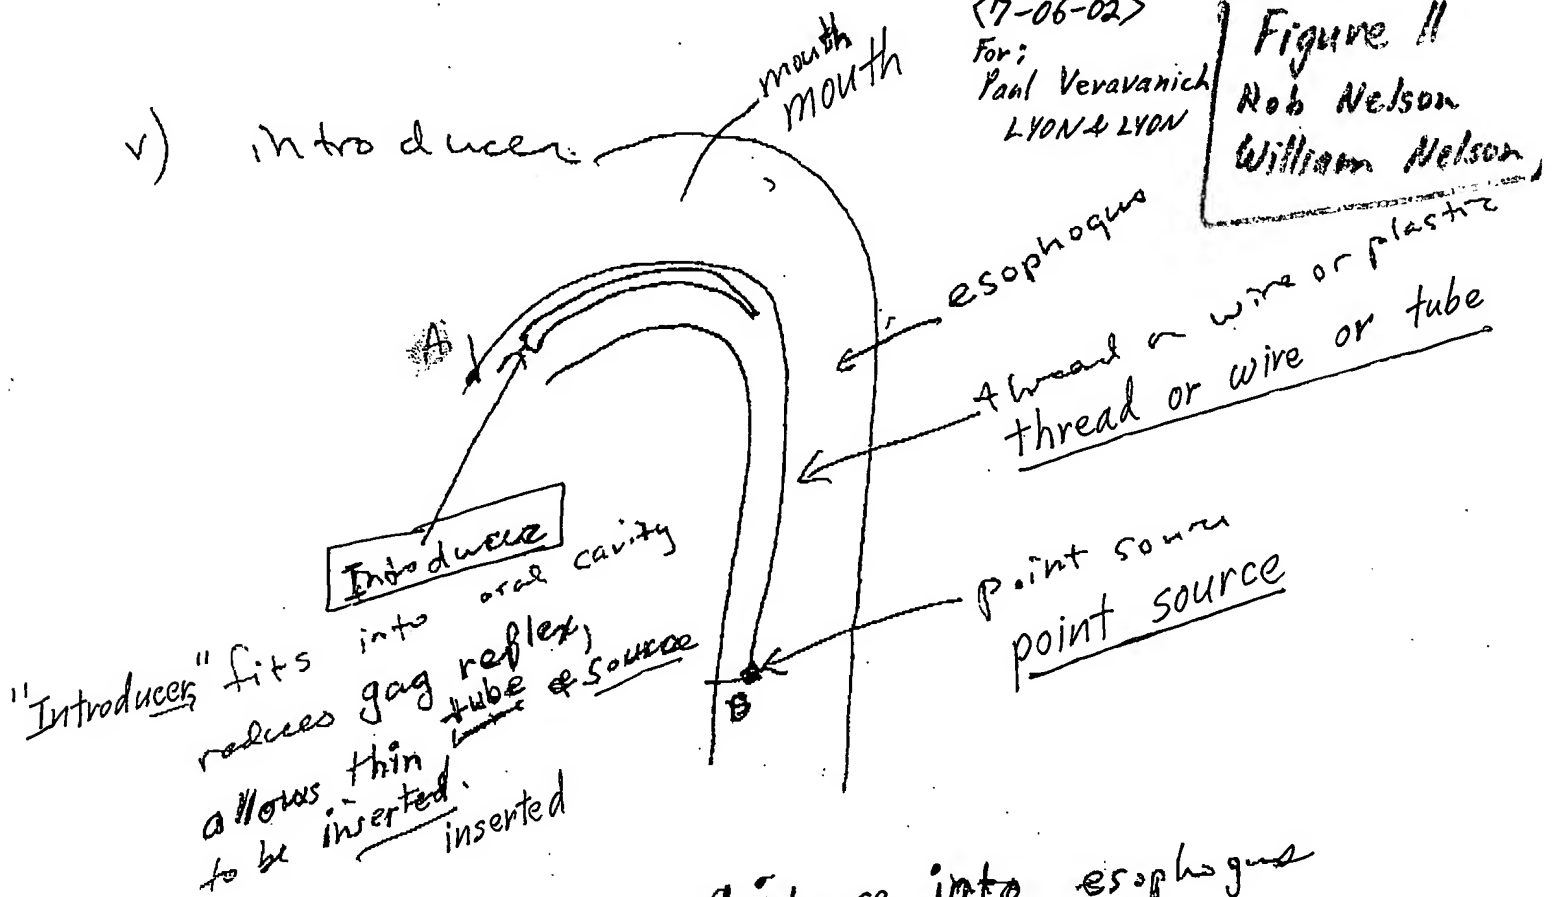 <7-06-02>
For;
Paul Veravanich
LYON & LYON
Figure 11
Rob Nelson
William Nelson,
v) introducer
mouth
mouth
esophogus
thread or wire or plastic
thread or wire or tube
A
Introducer
"Introducer" fits into oral cavity
reduces gag reflex,
allows thin tube & source
to be inserted.
inserted
point source
point source
B
into esophogus